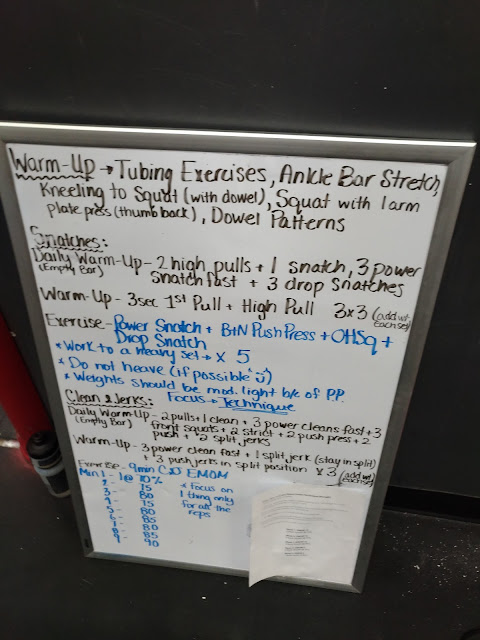 Warm-Up → Tubing Exercises, Ankle Bar Stretch,
Kneeling to Squat (with dowel), Squat with 1 arm
plate press (thumb back), Dowel Patterns
Snatches:
Daily Warm-Up - 2 high pulls + 1 snatch, 3 power
(Empty Bar) snatch fast + 3 drop snatches
Warm-Up - 3sec 1st Pull + High Pull 3x3 (add wt
each set)
Exercise - Power Snatch + BtN Push Press + OHSq +
Drop Snatch
* Work to a heavy set → x 5
* Do not heave (if possible)
* Weights should be mod. light b/c of P.P.
Focus → Technique
Clean & Jerks:
Daily Warm-Up - 2 pulls + 1 clean + 3 power cleans fast + 3
(Empty Bar) front squats + 2 strict + 2 push press + 2
push + 2 split jerks
Warm-Up - 3 power clean fast + 1 split jerk (stay in split)
+ 3 push jerks in split position x3 (add wt
each set)
Exercise - 9min C&J EMOM
Min 1 - 1@70%
2 - 75
3 - 80
4 - 75
5 - 80
6 - 85
7 - 80
8 - 85
9 - 90
* Focus on
1 thing only
for all the
reps